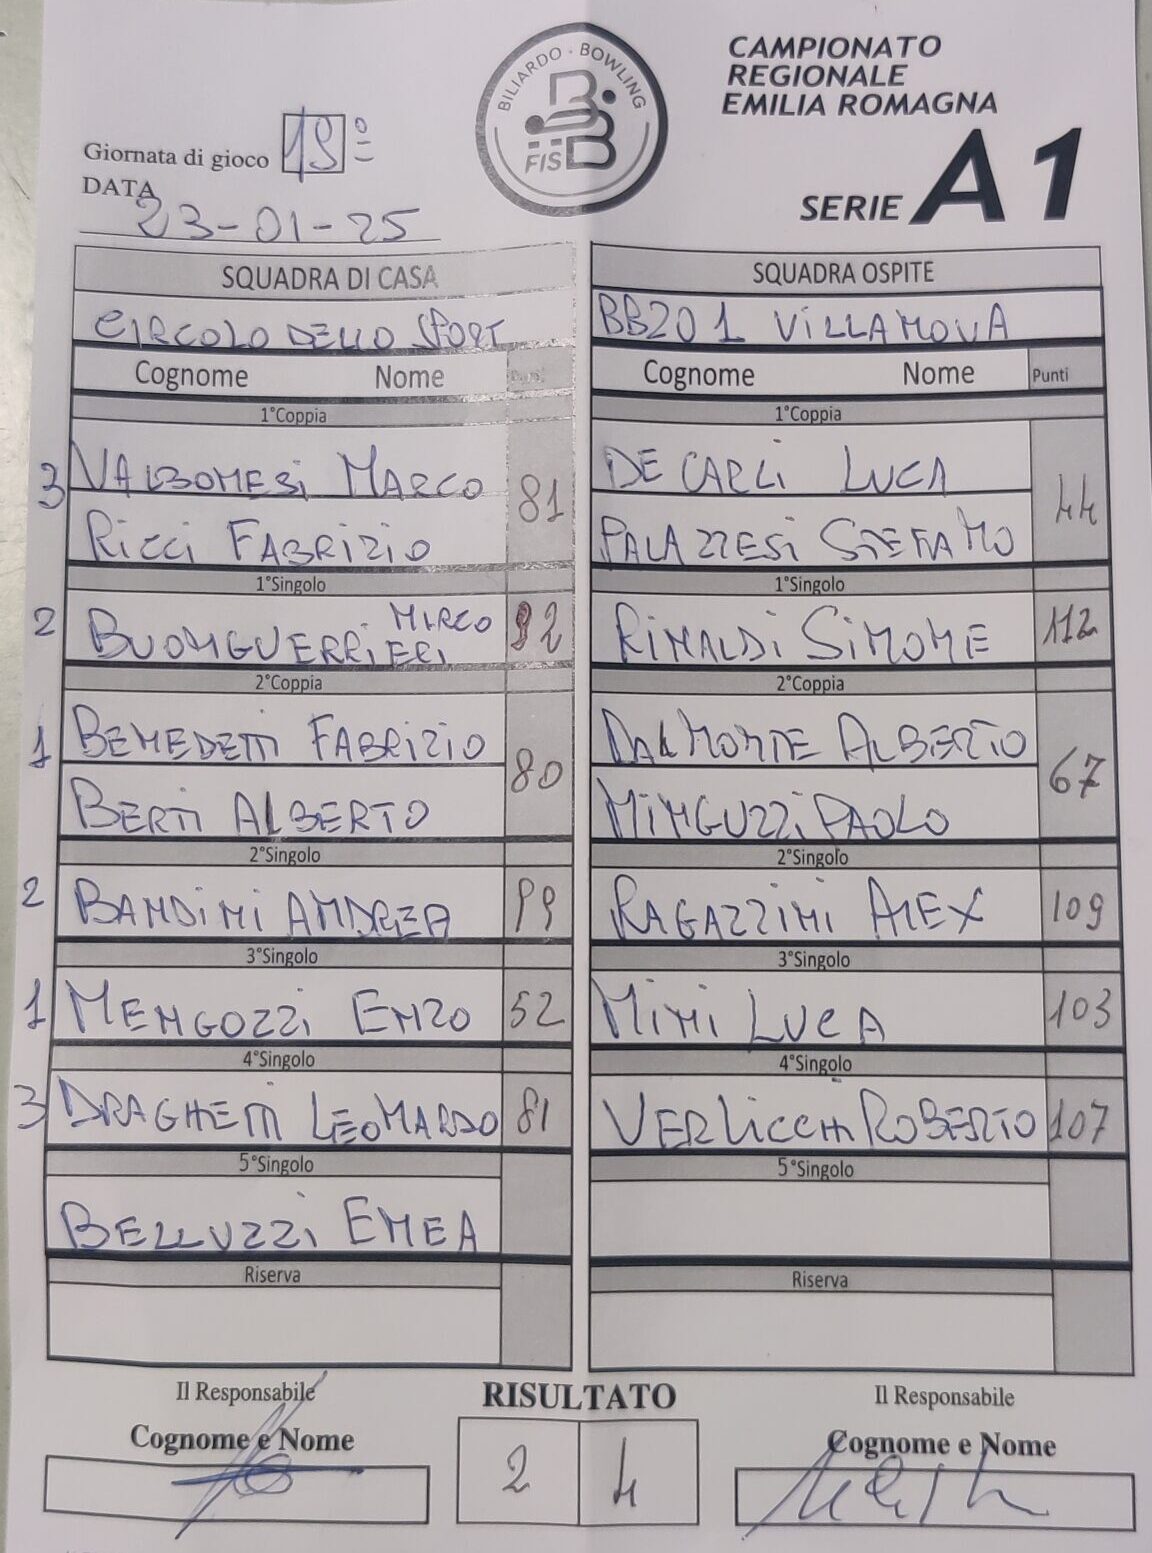 BILIARDO · BOWLING
FISBB
CAMPIONATO
REGIONALE
EMILIA ROMAGNA
SERIE A1
Giornata di gioco
DATA
23-01-25
SQUADRA DI CASA SQUADRA OSPITE
CIRCOLO DELLO SPORT BB201 VILLANOVA
Cognome Nome Punti Cognome Nome Punti
1°Coppia 1°Coppia
3 VALBONESI MARCO 81 DE CARLI LUCA 44
RICCI FABRIZIO PALAZZESI STEFANO
1°Singolo 1°Singolo
2 BUONGUERRIERI MIRCO 92 RINALDI SIMONE 112
2°Coppia 2°Coppia
1 BENEDETTI FABRIZIO 80 DALMONTE ALBERTO 67
BERTI ALBERTO MINGUZZI PAOLO
2°Singolo 2°Singolo
2 BANDINI ANDREA 99 RAGAZZINI ALEX 109
3°Singolo 3°Singolo
1 MENGOZZI ENZO 52 MINI LUCA 103
4°Singolo 4°Singolo
3 DRAGHETTI LEONARDO 81 VERLICCHI ROBERTO 107
5°Singolo 5°Singolo
BELLUZZI ENEA
Riserva Riserva
Il Responsabile RISULTATO Il Responsabile
Cognome e Nome Cognome e Nome
2 4